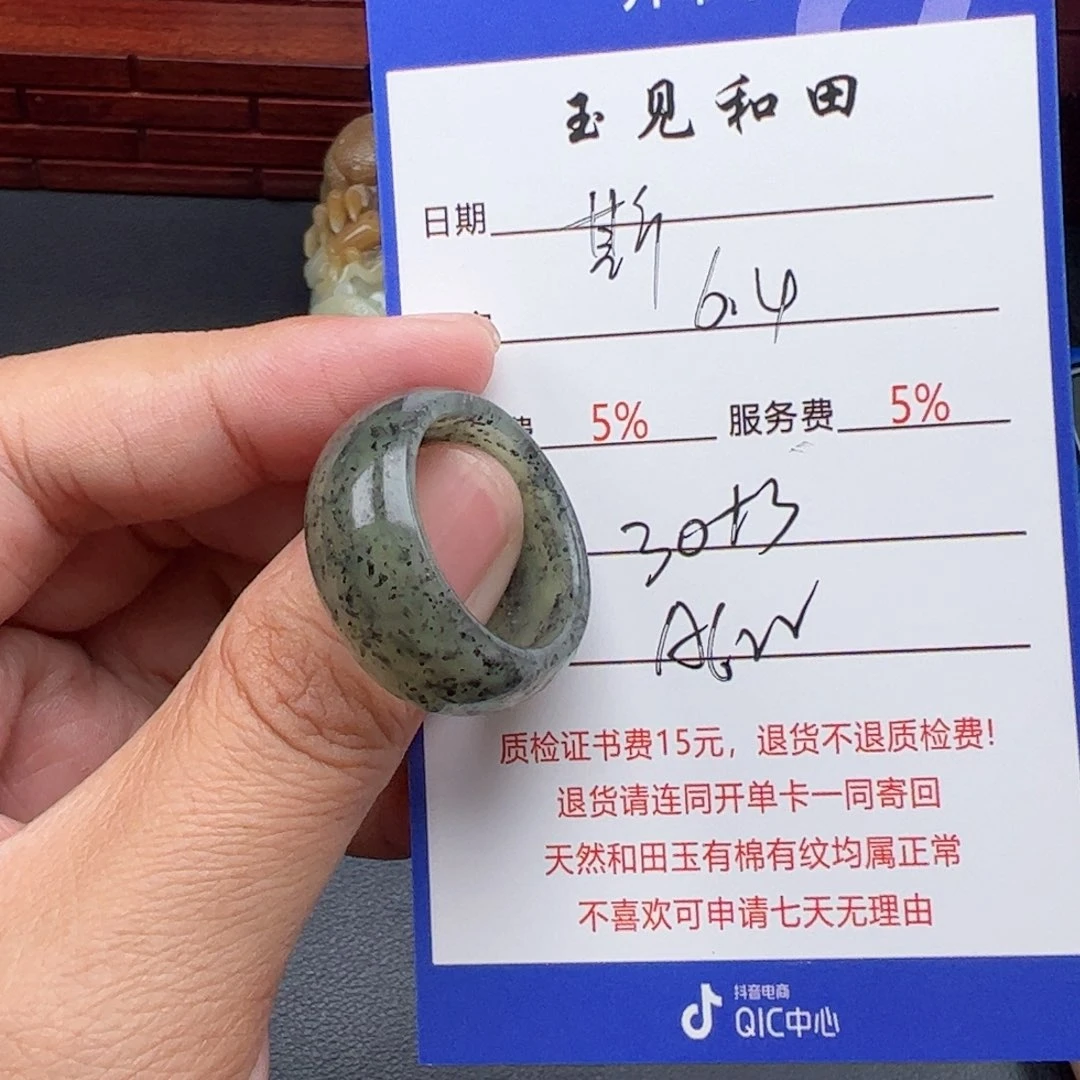 玉见和田
日期 斯
6.4
5% 服务费 5%
质检证书费15元，退货不退质检费!
退货请连同开单卡一同寄回
天然和田玉有棉有纹均属正常
不喜欢可申请七天无理由
抖音电商
QIC中心